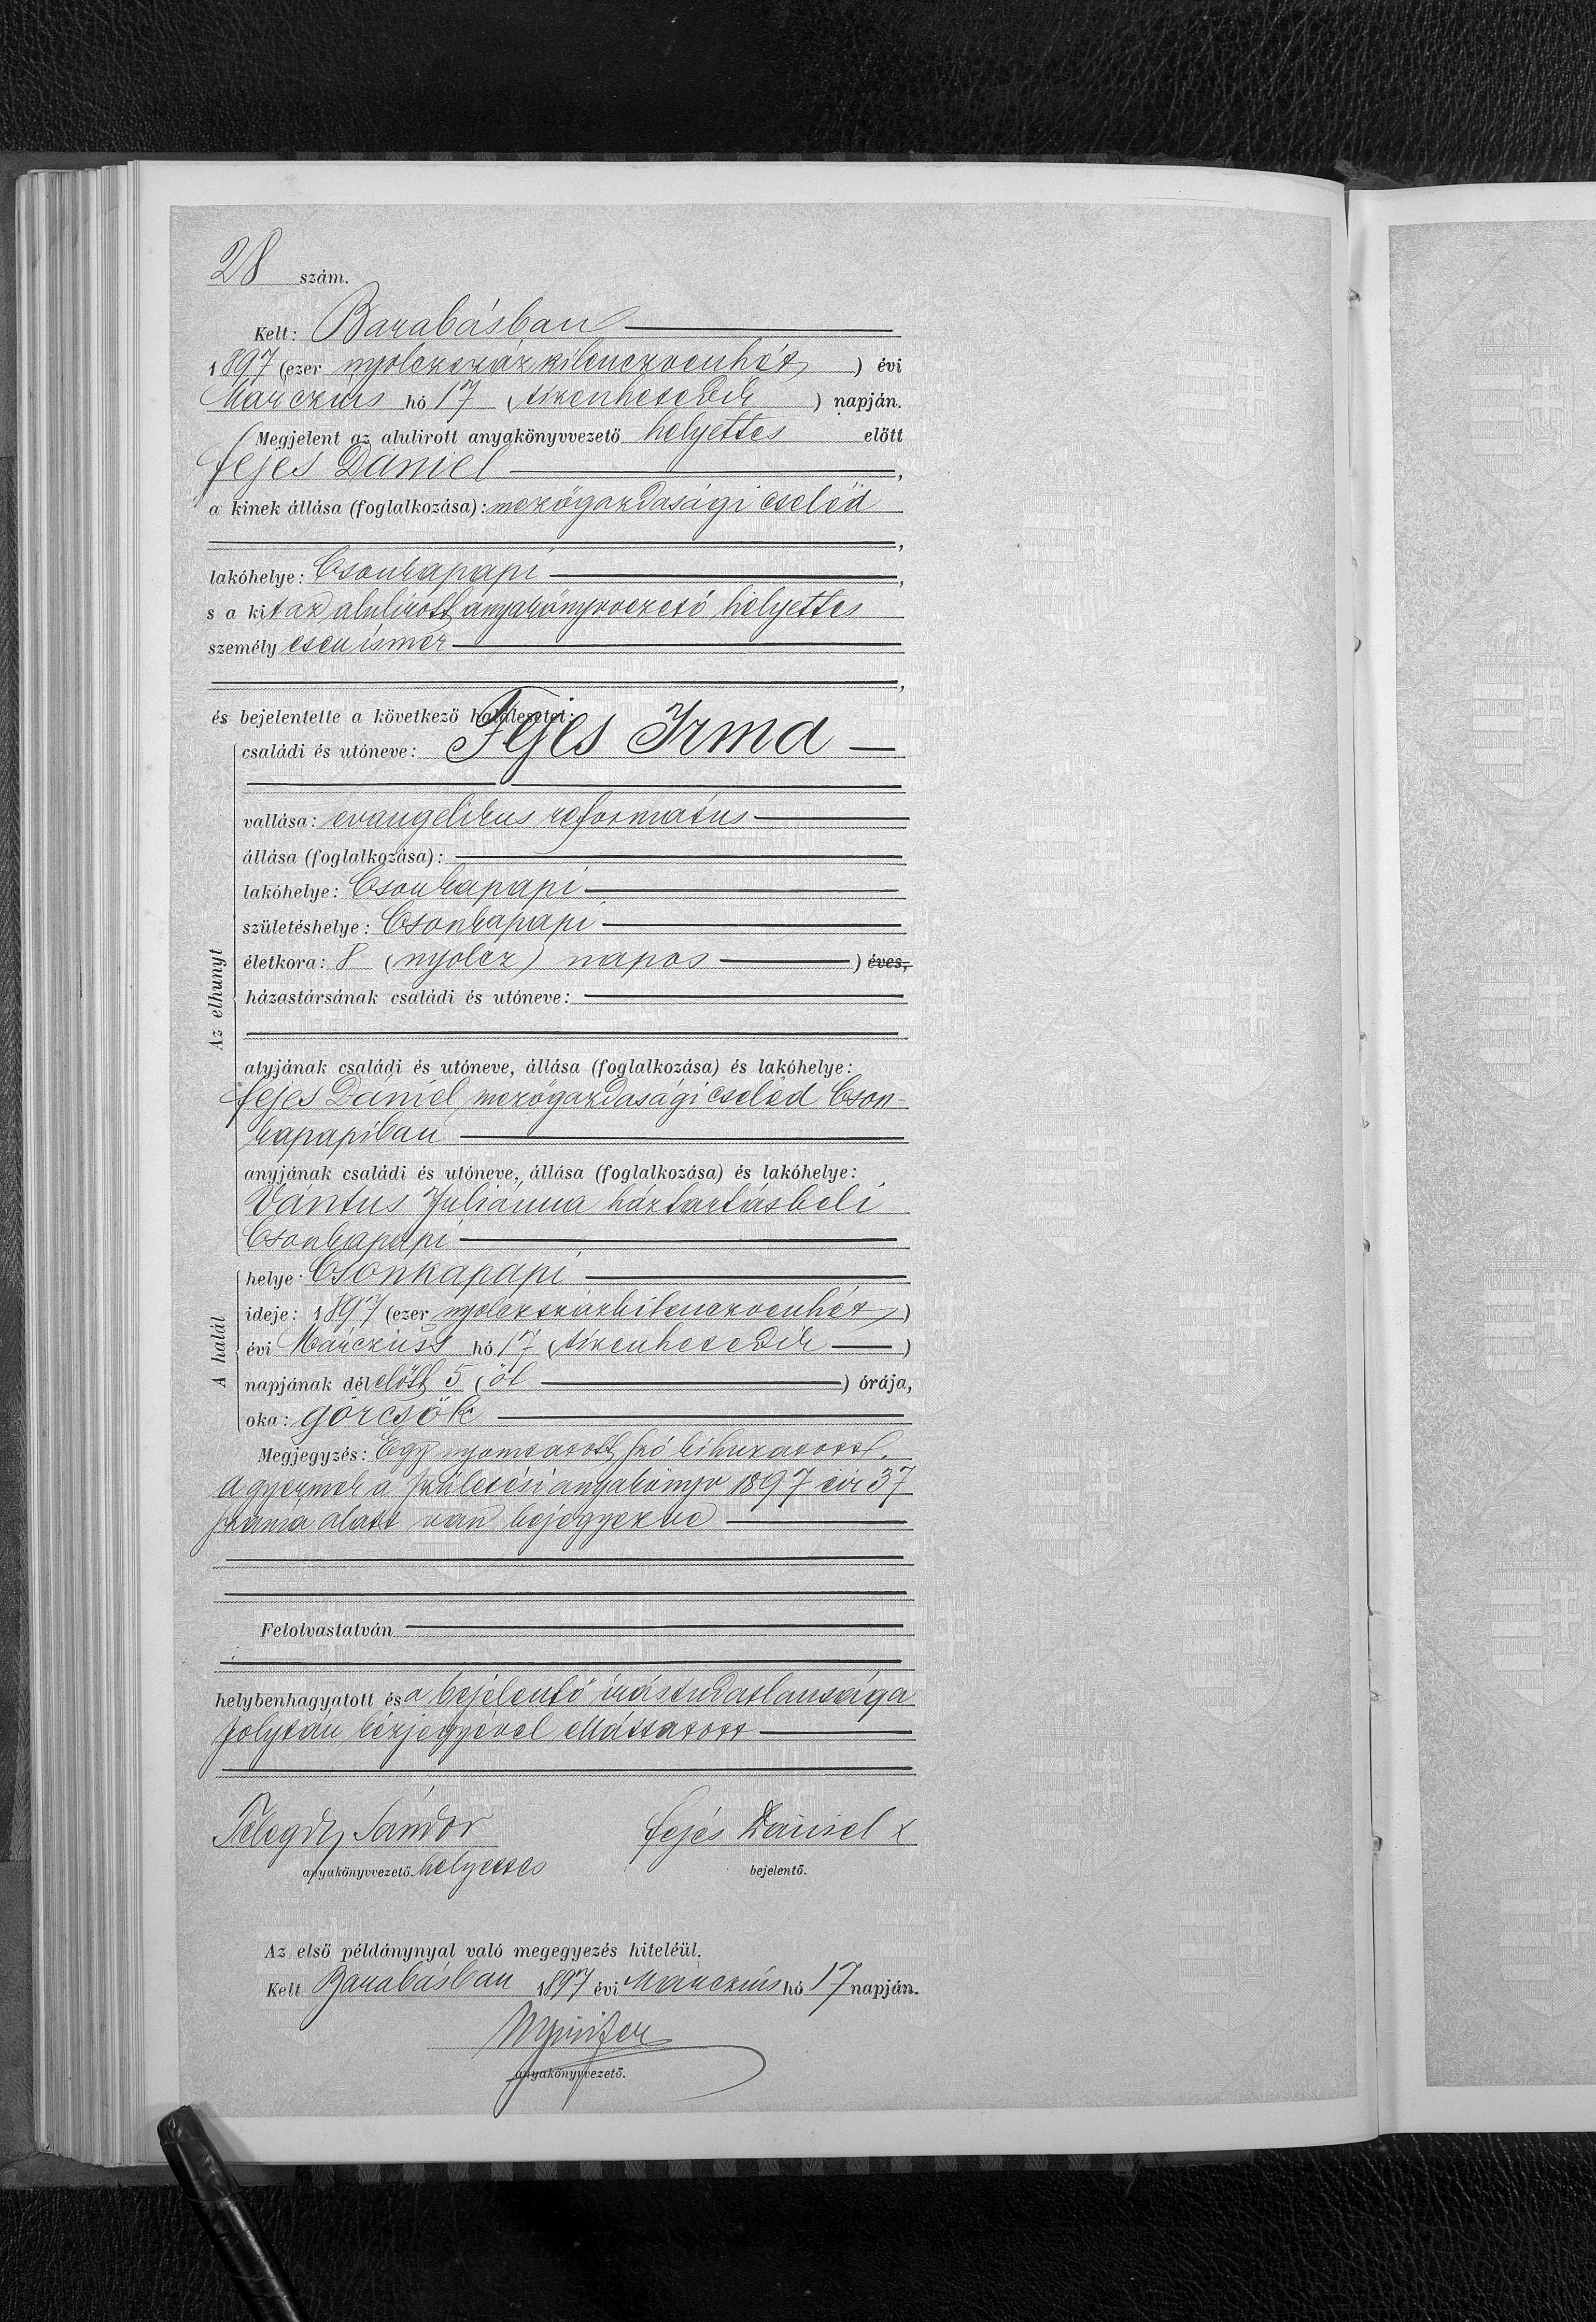 28 szám.
Kelt: Barabásban
1897 (ezer nyolczszáz kilenczvenhét) évi
Márczius hó 17 (tizenhetedik) napján.
Megjelent az alulirott anyakönyvvezető helyettes előtt
Fejes Dániel,
a kinek állása (foglalkozása): mezőgazdasági cseléd
,
lakóhelye: Csonkapapi,
s a kit az alulirott anyakönyvvezető helyettes
személyesen ismer
,
és bejelentette a következő halálesetet:
családi és utóneve: Fejes Irma
vallása: evangelikus református
állása (foglalkozása):
lakóhelye: Csonkapapi
születéshelye: Csonkapapi
Az elhunyt
életkora: 8 (nyolcz) napos ) éves,
házastársának családi és utóneve:
atyjának családi és utóneve, állása (foglalkozása) és lakóhelye:
Fejes Dániel mezőgazdasági cseléd Cson-
kapapiban
anyjának családi és utóneve, állása (foglalkozása) és lakóhelye:
Vántus Juliánna háztartásbeli
Csonkapapi
A halál
helye: Csonkapapi
ideje: 1897 (ezer nyolczszázkilenczvenhét)
évi Márczius hó 17 (tizenhetedik)
napjának délelőtt 5 (öt) órája,
oka: görcsök
Megjegyzés: Egy nyomtatott szó kihuzatott.
A gyermek a születési anyakönyv 1897 évi 37
száma alatt van bejegyezve
Felolvastatván
helybenhagyatott és a bejelentő irástudatlansága
folytán kézjegyével elláttatott
Telegdy Sándor Fejés Dániel x
anyakönyvvezető. helyettes bejelentő.
Az első példánynyal való megegyezés hiteléül.
Kelt Barabásban 1897 évi Márczius hó 17 napján.
anyakönyvvezető.